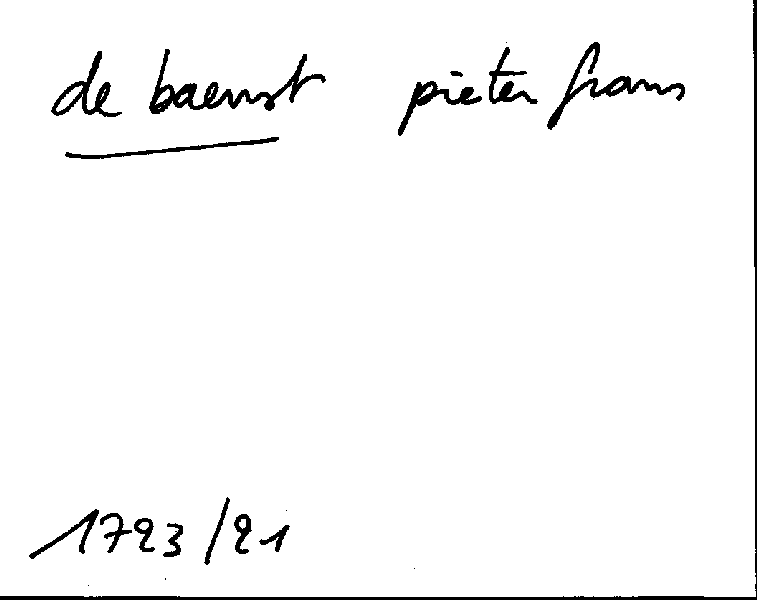 de baenst pieter frans
1723/21